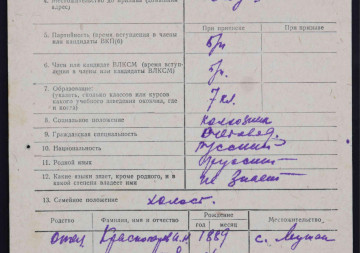 адрес)
При призыве
5. Партийность (время вступления в члены
или кандидаты ВКП(б)
б/п
6. Член или кандидат ВЛКСМ (время всту-
пления в члены или кандидаты ВЛКСМ)
б/п.
7. Образование:
(указать, сколько классов или курсов
какого учебного заведения окончил, где
и когда)
7 кл.
8. Социальное положение
колхозник
9. Гражданская специальность
счетовод.
10. Национальность
русский
11. Родной язык
русский
12. Какие языки знает, кроме родного, и в
какой степени владеет ими
не знает
13. Семейное положение
холост.
Родство
Фамилия, имя и отчество
Рождение
год
месяц
Местожительство
Отец
1889
с.